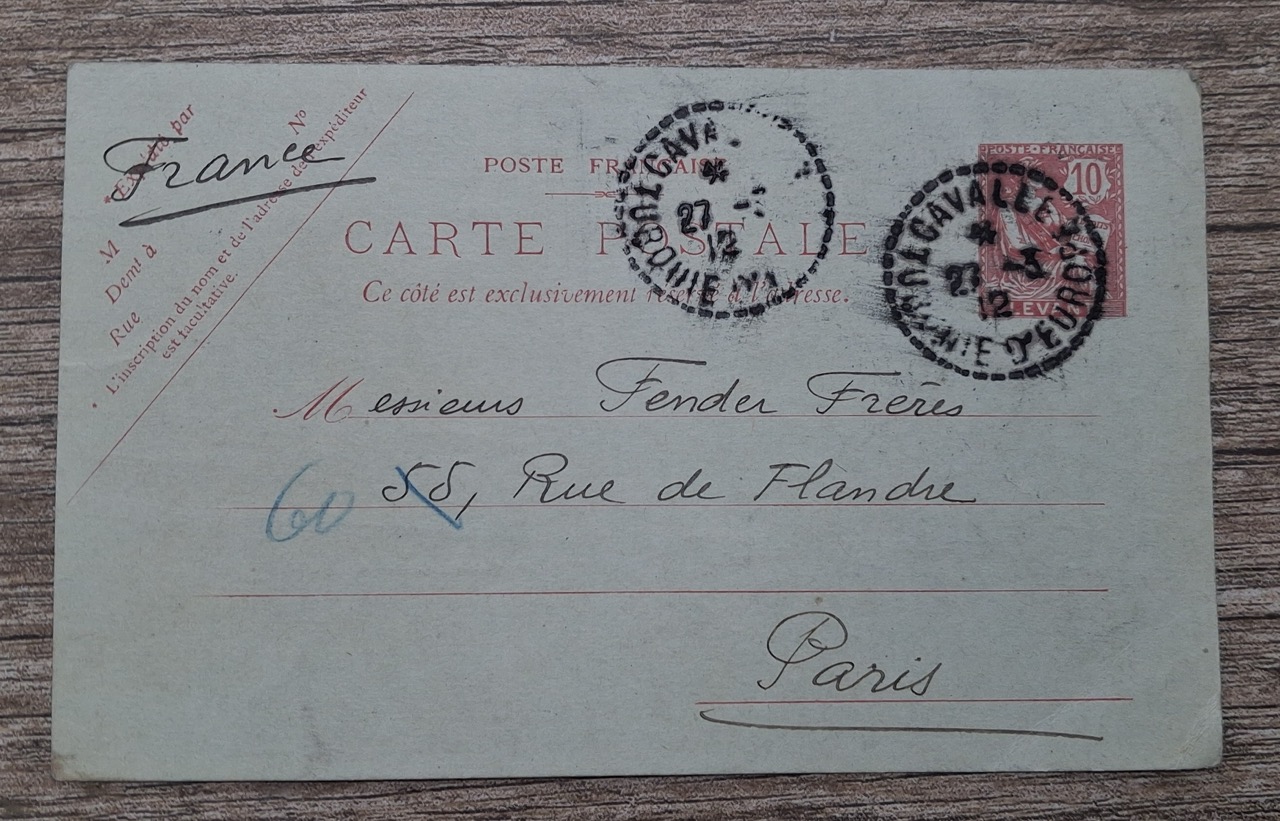 Expédié par
M
Demt à
Rue Nº
L'inscription du nom et de l'adresse de l'expéditeur
est facultative.
France
POSTE FRANÇAISE
CARTE POSTALE
Ce côté est exclusivement réservé à l'adresse.
CAVA
27
12
POSTE FRANÇAISE
10
LEVANT
CAVALLE
TURQUIE D'EUROPE
27 -3
12
Messieurs Fender Frères
60 55, Rue de Flandre
Paris